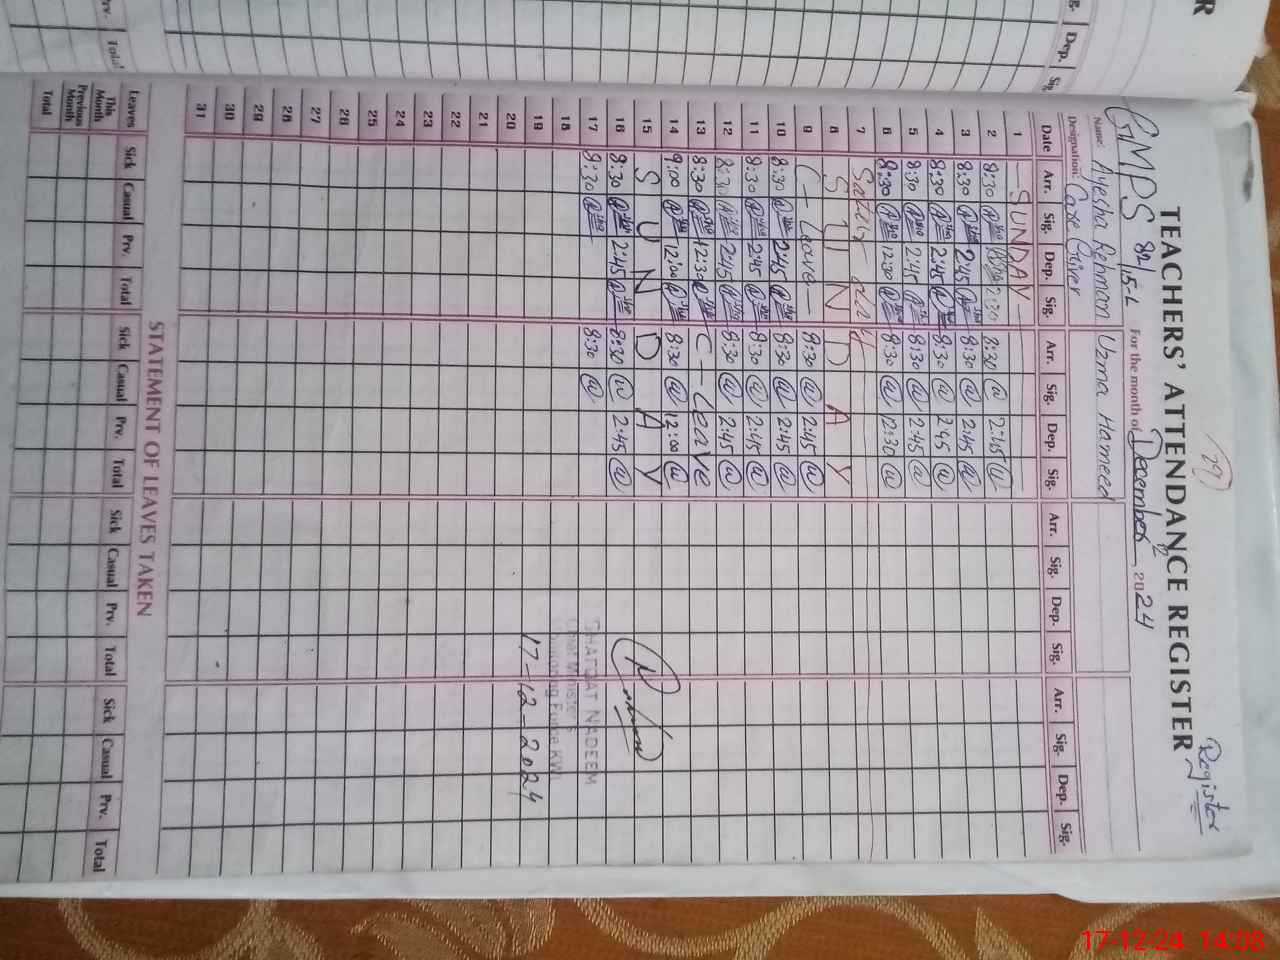 Register
29
TEACHERS' ATTENDANCE REGISTER
GMPS 82/15-L For the month of December 12 2024
Name: Ayesha Rehman Uzma Hameed
Designation: Care Giver
Date Arr. Sig. Dep. Sig. Arr. Sig. Dep. Sig. Arr. Sig. Dep. Sig. Arr. Sig. Dep. Sig.
1 SUNDAY
2 8:30 2:30 8:30 2:45
3 8:30 2:45 8:30 2:45
4 8:30 2:45 8:30 2:45
5 8:30 2:45 8:30 2:45
6 8:30 12:30 8:30 12:30
7
8 S U N D A Y
9 C - Leave - 8:30 2:45
10 8:30 2:45 8:30 2:45
11 8:30 2:45 8:30 2:45
12 8:30 2:45 8:30 2:45
13 8:30 12:30 C - Leave
14 9:00 12:00 8:30 12:00
15 S U N D A Y
16 8:30 2:45 8:30 2:45
17 8:30 8:30
18
19
20
21
22
23
24
25
26
27
28
29
30
31
SHAFQAT NADEEM
Chief Minister's
Monitoring Force KWL
17-12-2024
STATEMENT OF LEAVES TAKEN
Leaves Sick Casual Prv. Total Sick Casual Prv. Total Sick Casual Prv. Total Sick Casual Prv. Total
This Month
Previous Month
Total
R
Dep.
Prv. Total
17-12-24 14:08